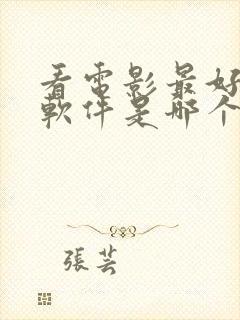 看電影最好
軟件是哪个
張芸